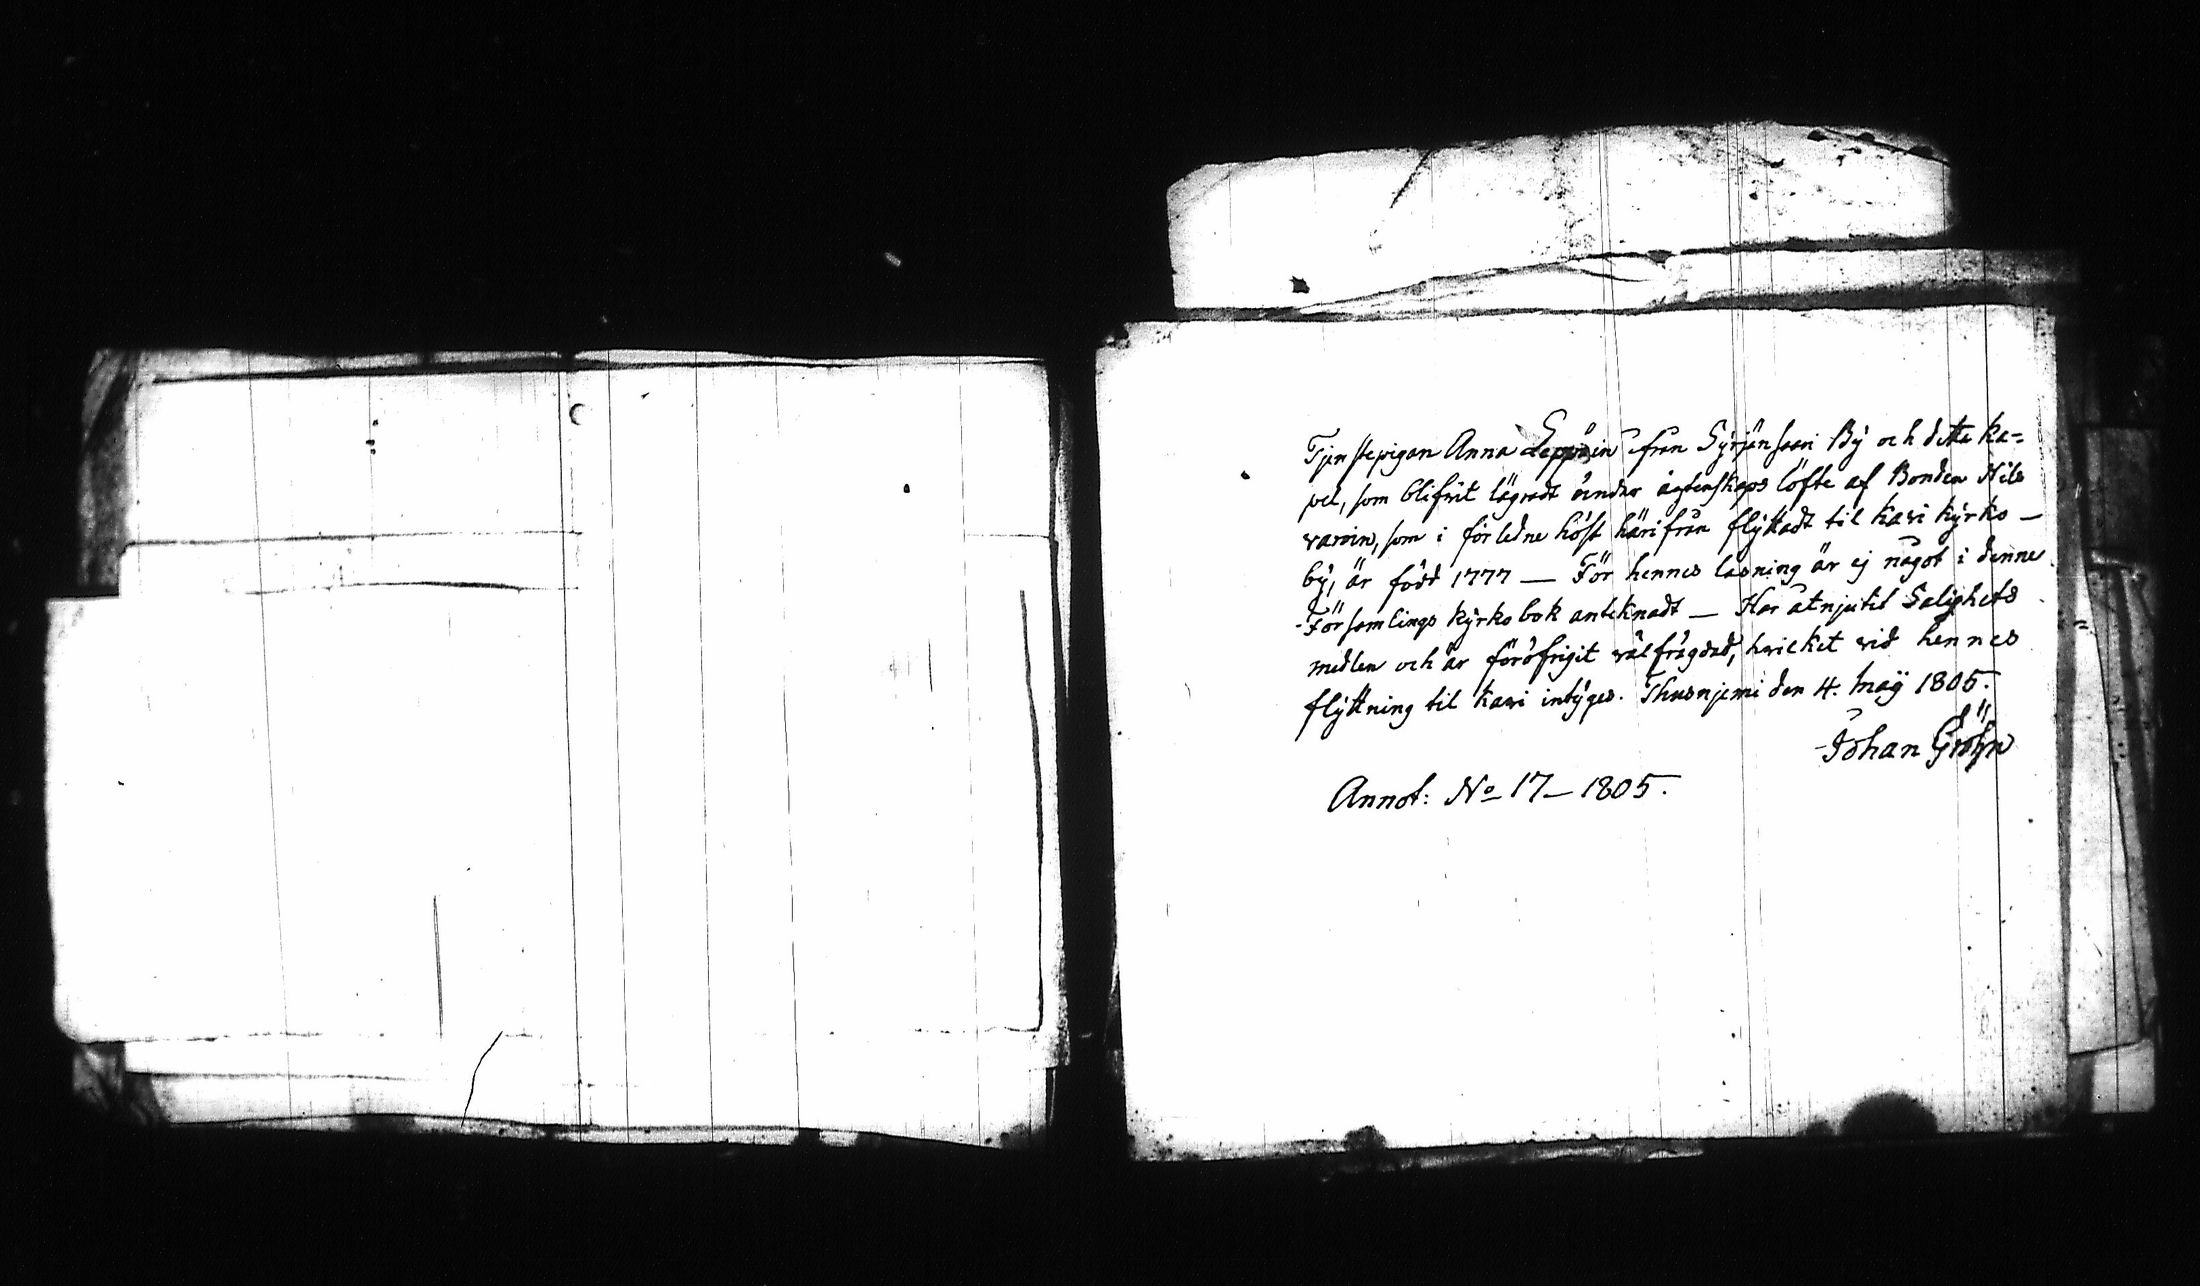 Tjenstepigan Anna Leppäin från Syrjänsaari Bÿ och detta ka=
pel, som blifvit lägradt under ägtenskaps löfte af Bonden Nils
varoin, som i förledne höst härifrån flÿttadt til Kavi kÿrko-
bÿ, är född 1777 — För hennes läsning är ej något i denne
Församlings kÿrkobok anteknadt — Har åtnjutit Salighets
medlen och är föröfrigit välfrägdad, hvilket vid hennes
flÿttning til Kavi intÿges. Thusnjemi den 4. Maÿ 1805.
Johan Gröhn
Annot: No 17 — 1805.